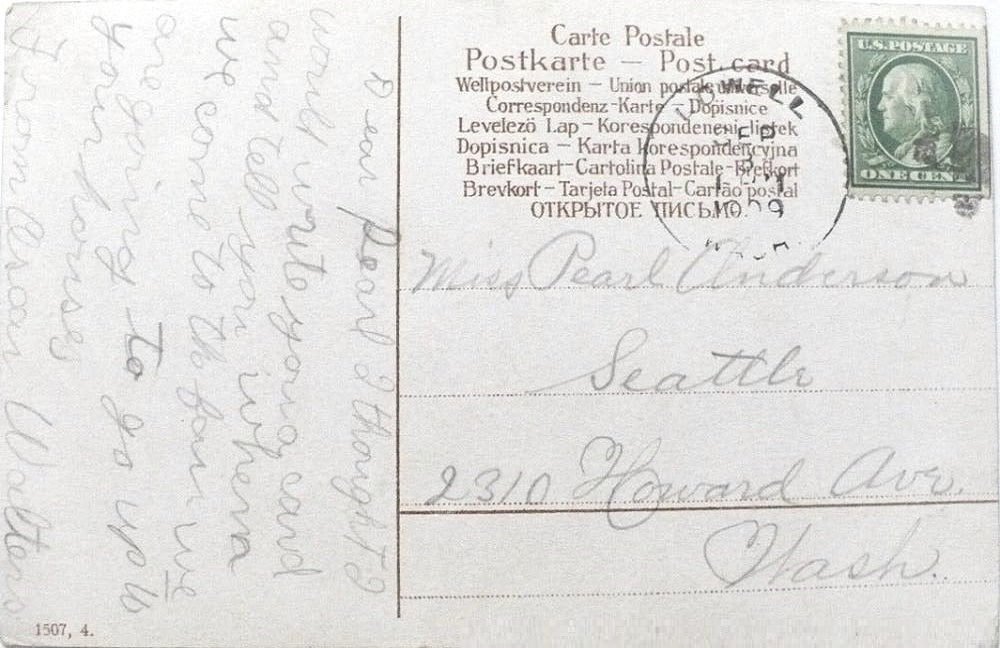 Dear Pearl I thought I
would write you a card
and tell you when
we come to the fair we
are going to go up to
your house
From Oscar Walters
1507, 4.
Carte Postale
Postkarte – Post card
Weltpostverein – Union postale universelle
Correspondenz-Karte – Dopisnice
Levelező Lap – Korespondencni listek
Dopisnica – Karta korespondencyjna
Briefkaart – Cartolina Postale – Brefkort
Brevkort – Tarjeta Postal – Cartão postal
ОТКРЫТОЕ ПИСЬМО.
LOWELL
SEP
3
1909
WASH
U.S. POSTAGE
ONE CENT
Miss Pearl Anderson
Seattle
2310 Howard Ave.
Wash.